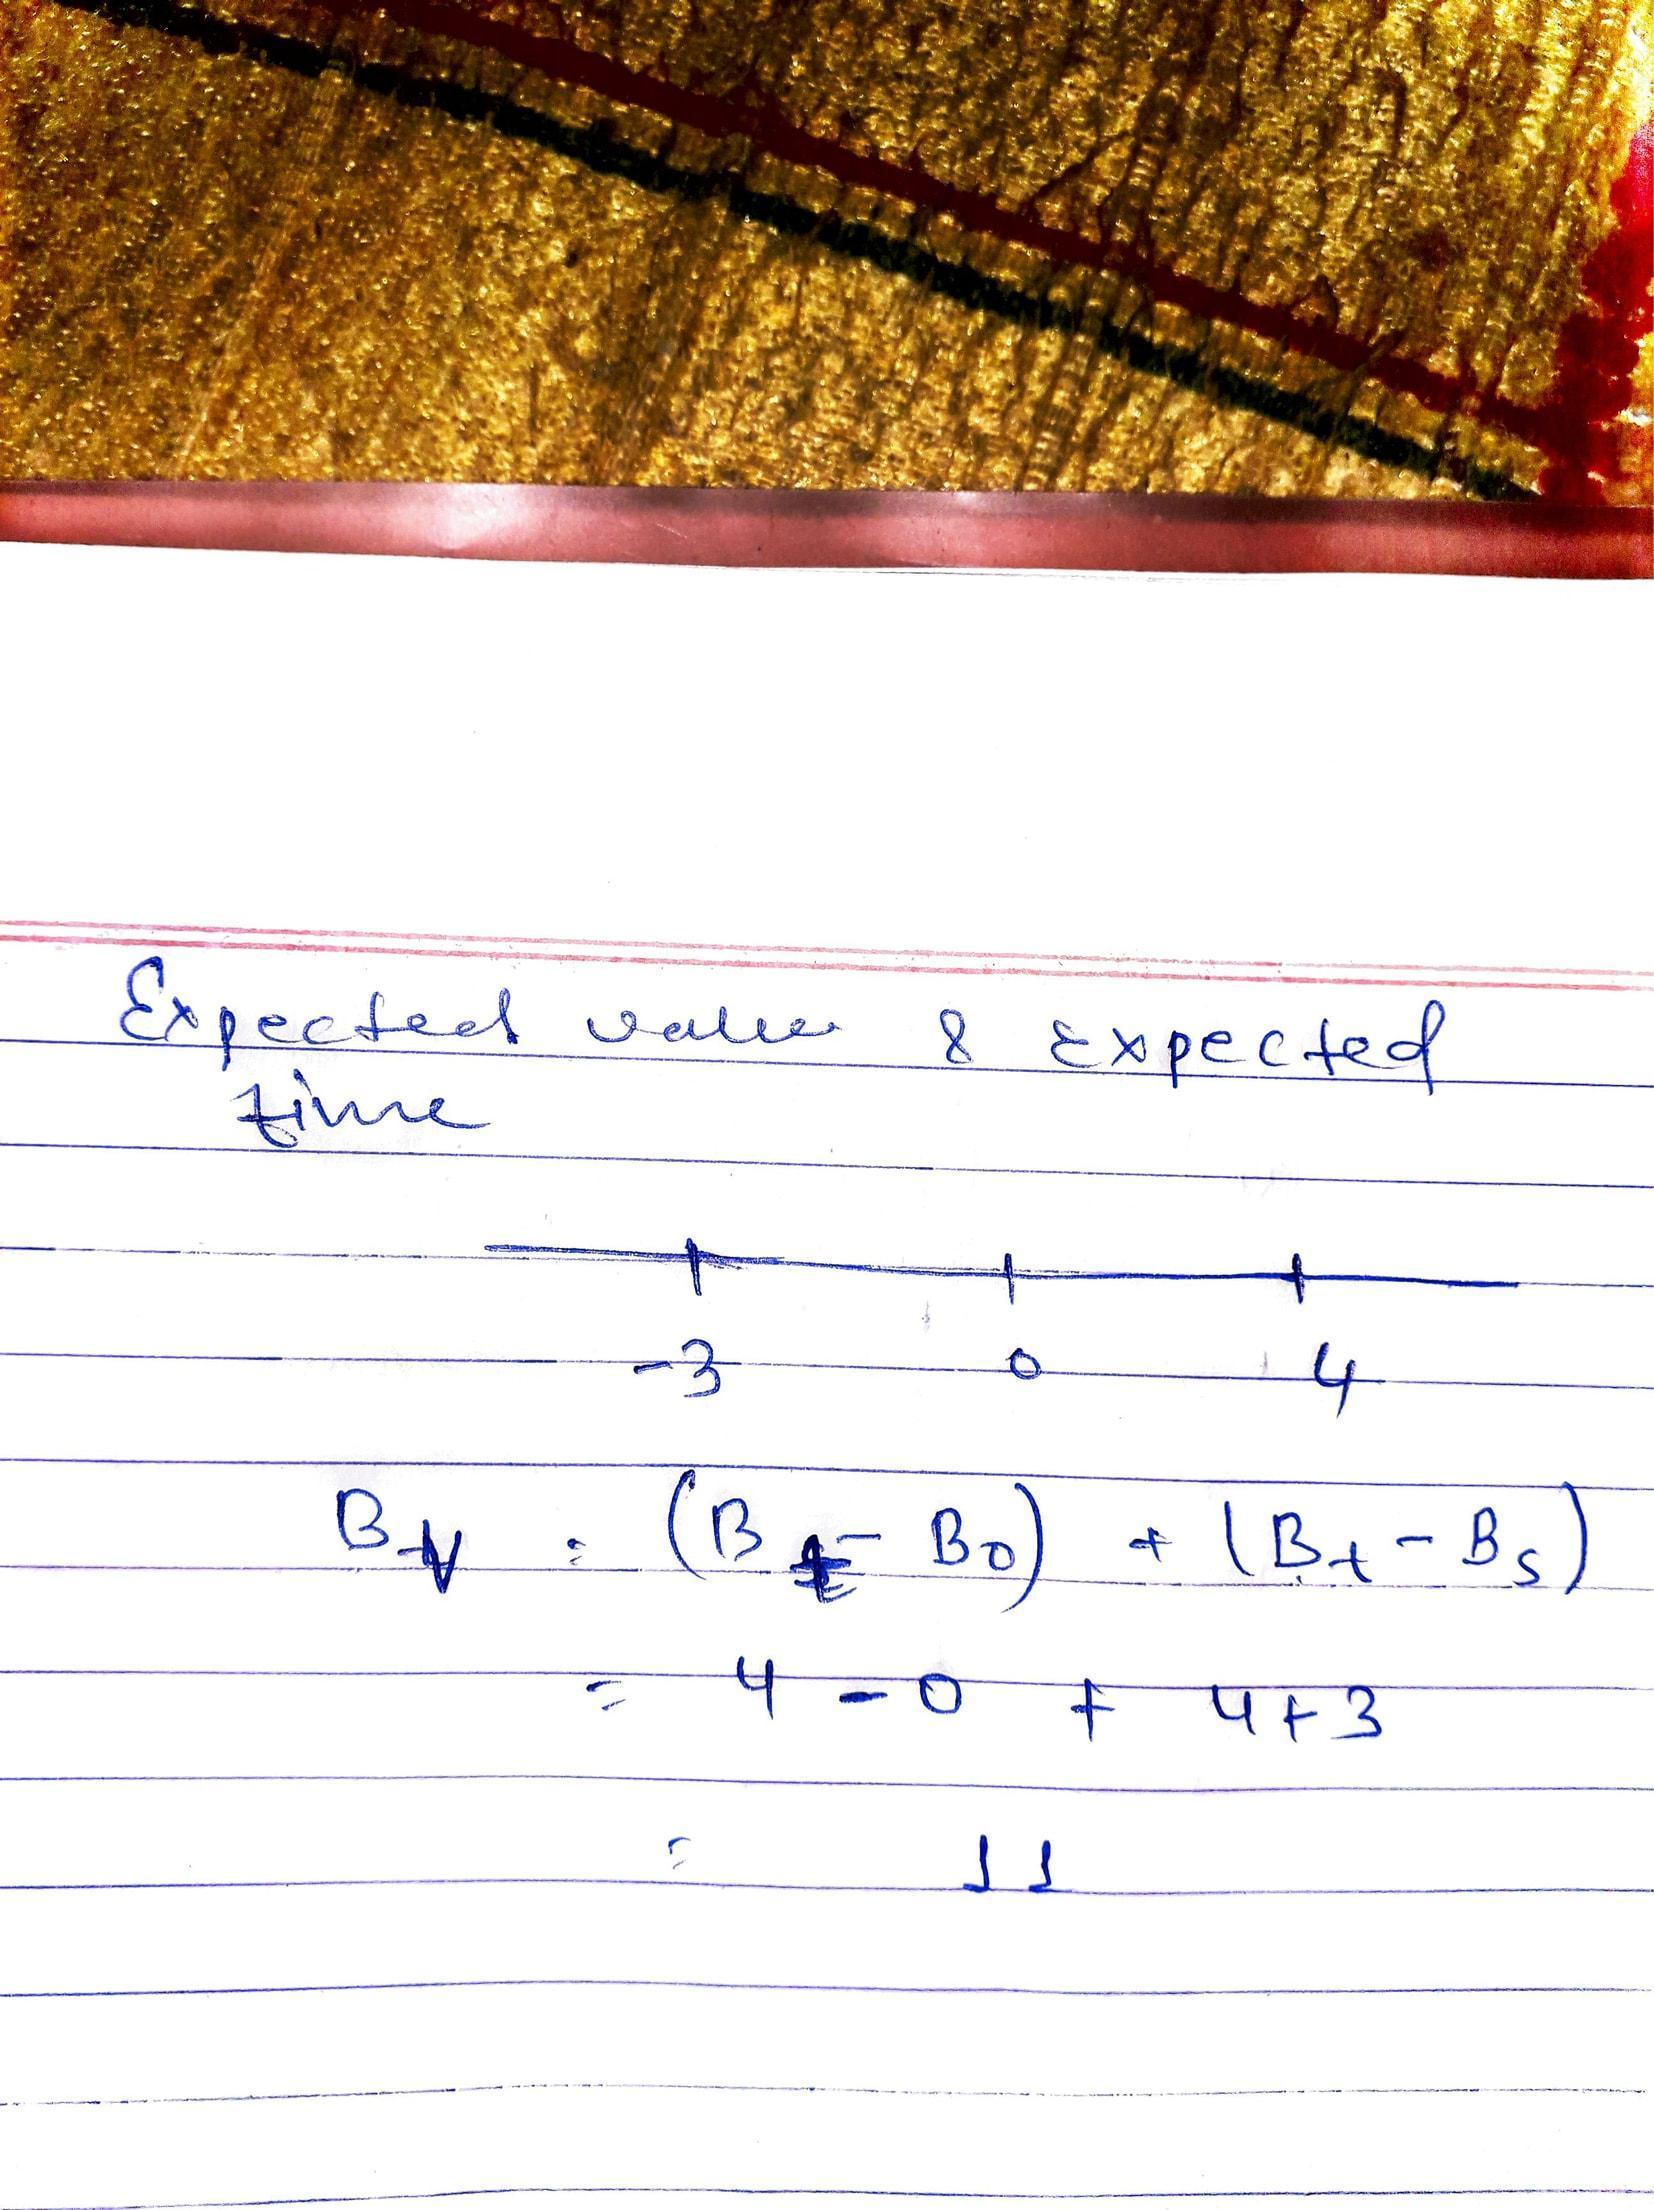 Expected value & Expected
time
-3 0 4
Bv = (Bt - B0) + (Bt - Bs)
= 4 - 0 + 4 + 3
= 11